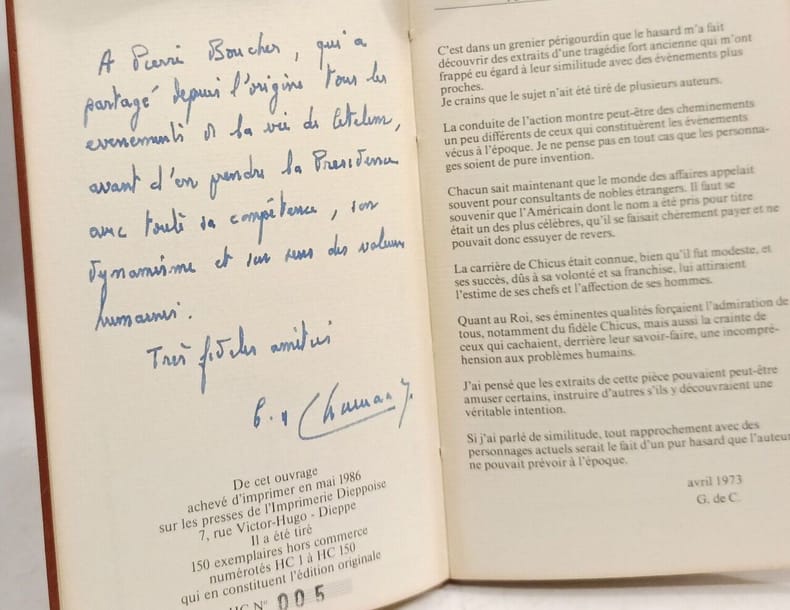 A Pierre Boucher, qui a
partagé depuis l'origine tous les
evenements de la vie de Cetelem,
avant d'en prendre la Presidence
avec toute sa compétence, son
dynamisme et son sens des valeurs
humaines.
Très fideles amitiés
De cet ouvrage
achevé d'imprimer en mai 1986
sur les presses de l'Imprimerie Dieppoise
7, rue Victor-Hugo - Dieppe
Il a été tiré
150 exemplaires hors commerce
numérotés HC 1 à HC 150
qui en constituent l'édition originale
HC N° 005
C'est dans un grenier périgourdin que le hasard m'a fait
découvrir des extraits d'une tragédie fort ancienne qui m'ont
frappé eu égard à leur similitude avec des événements plus
proches.
Je crains que le sujet n'ait été tiré de plusieurs auteurs.
La conduite de l'action montre peut-être des cheminements
un peu différents de ceux qui constituèrent les événements
vécus à l'époque. Je ne pense pas en tout cas que les personna-
ges soient de pure invention.
Chacun sait maintenant que le monde des affaires appelait
souvent pour consultants de nobles étrangers. Il faut se
souvenir que l'Américain dont le nom a été pris pour titre
était un des plus célèbres, qu'il se faisait chèrement payer et ne
pouvait donc essuyer de revers.
La carrière de Chicus était connue, bien qu'il fut modeste, et
ses succès, dûs à sa volonté et sa franchise, lui attiraient
l'estime de ses chefs et l'affection de ses hommes.
Quant au Roi, ses éminentes qualités forçaient l'admiration de
tous, notamment du fidèle Chicus, mais aussi la crainte de
ceux qui cachaient, derrière leur savoir-faire, une incompré-
hension aux problèmes humains.
J'ai pensé que les extraits de cette pièce pouvaient peut-être
amuser certains, instruire d'autres s'ils y découvraient une
véritable intention.
Si j'ai parlé de similitude, tout rapprochement avec des
personnages actuels serait le fait d'un pur hasard que l'auteur
ne pouvait prévoir à l'époque.
avril 1973
G. de C.